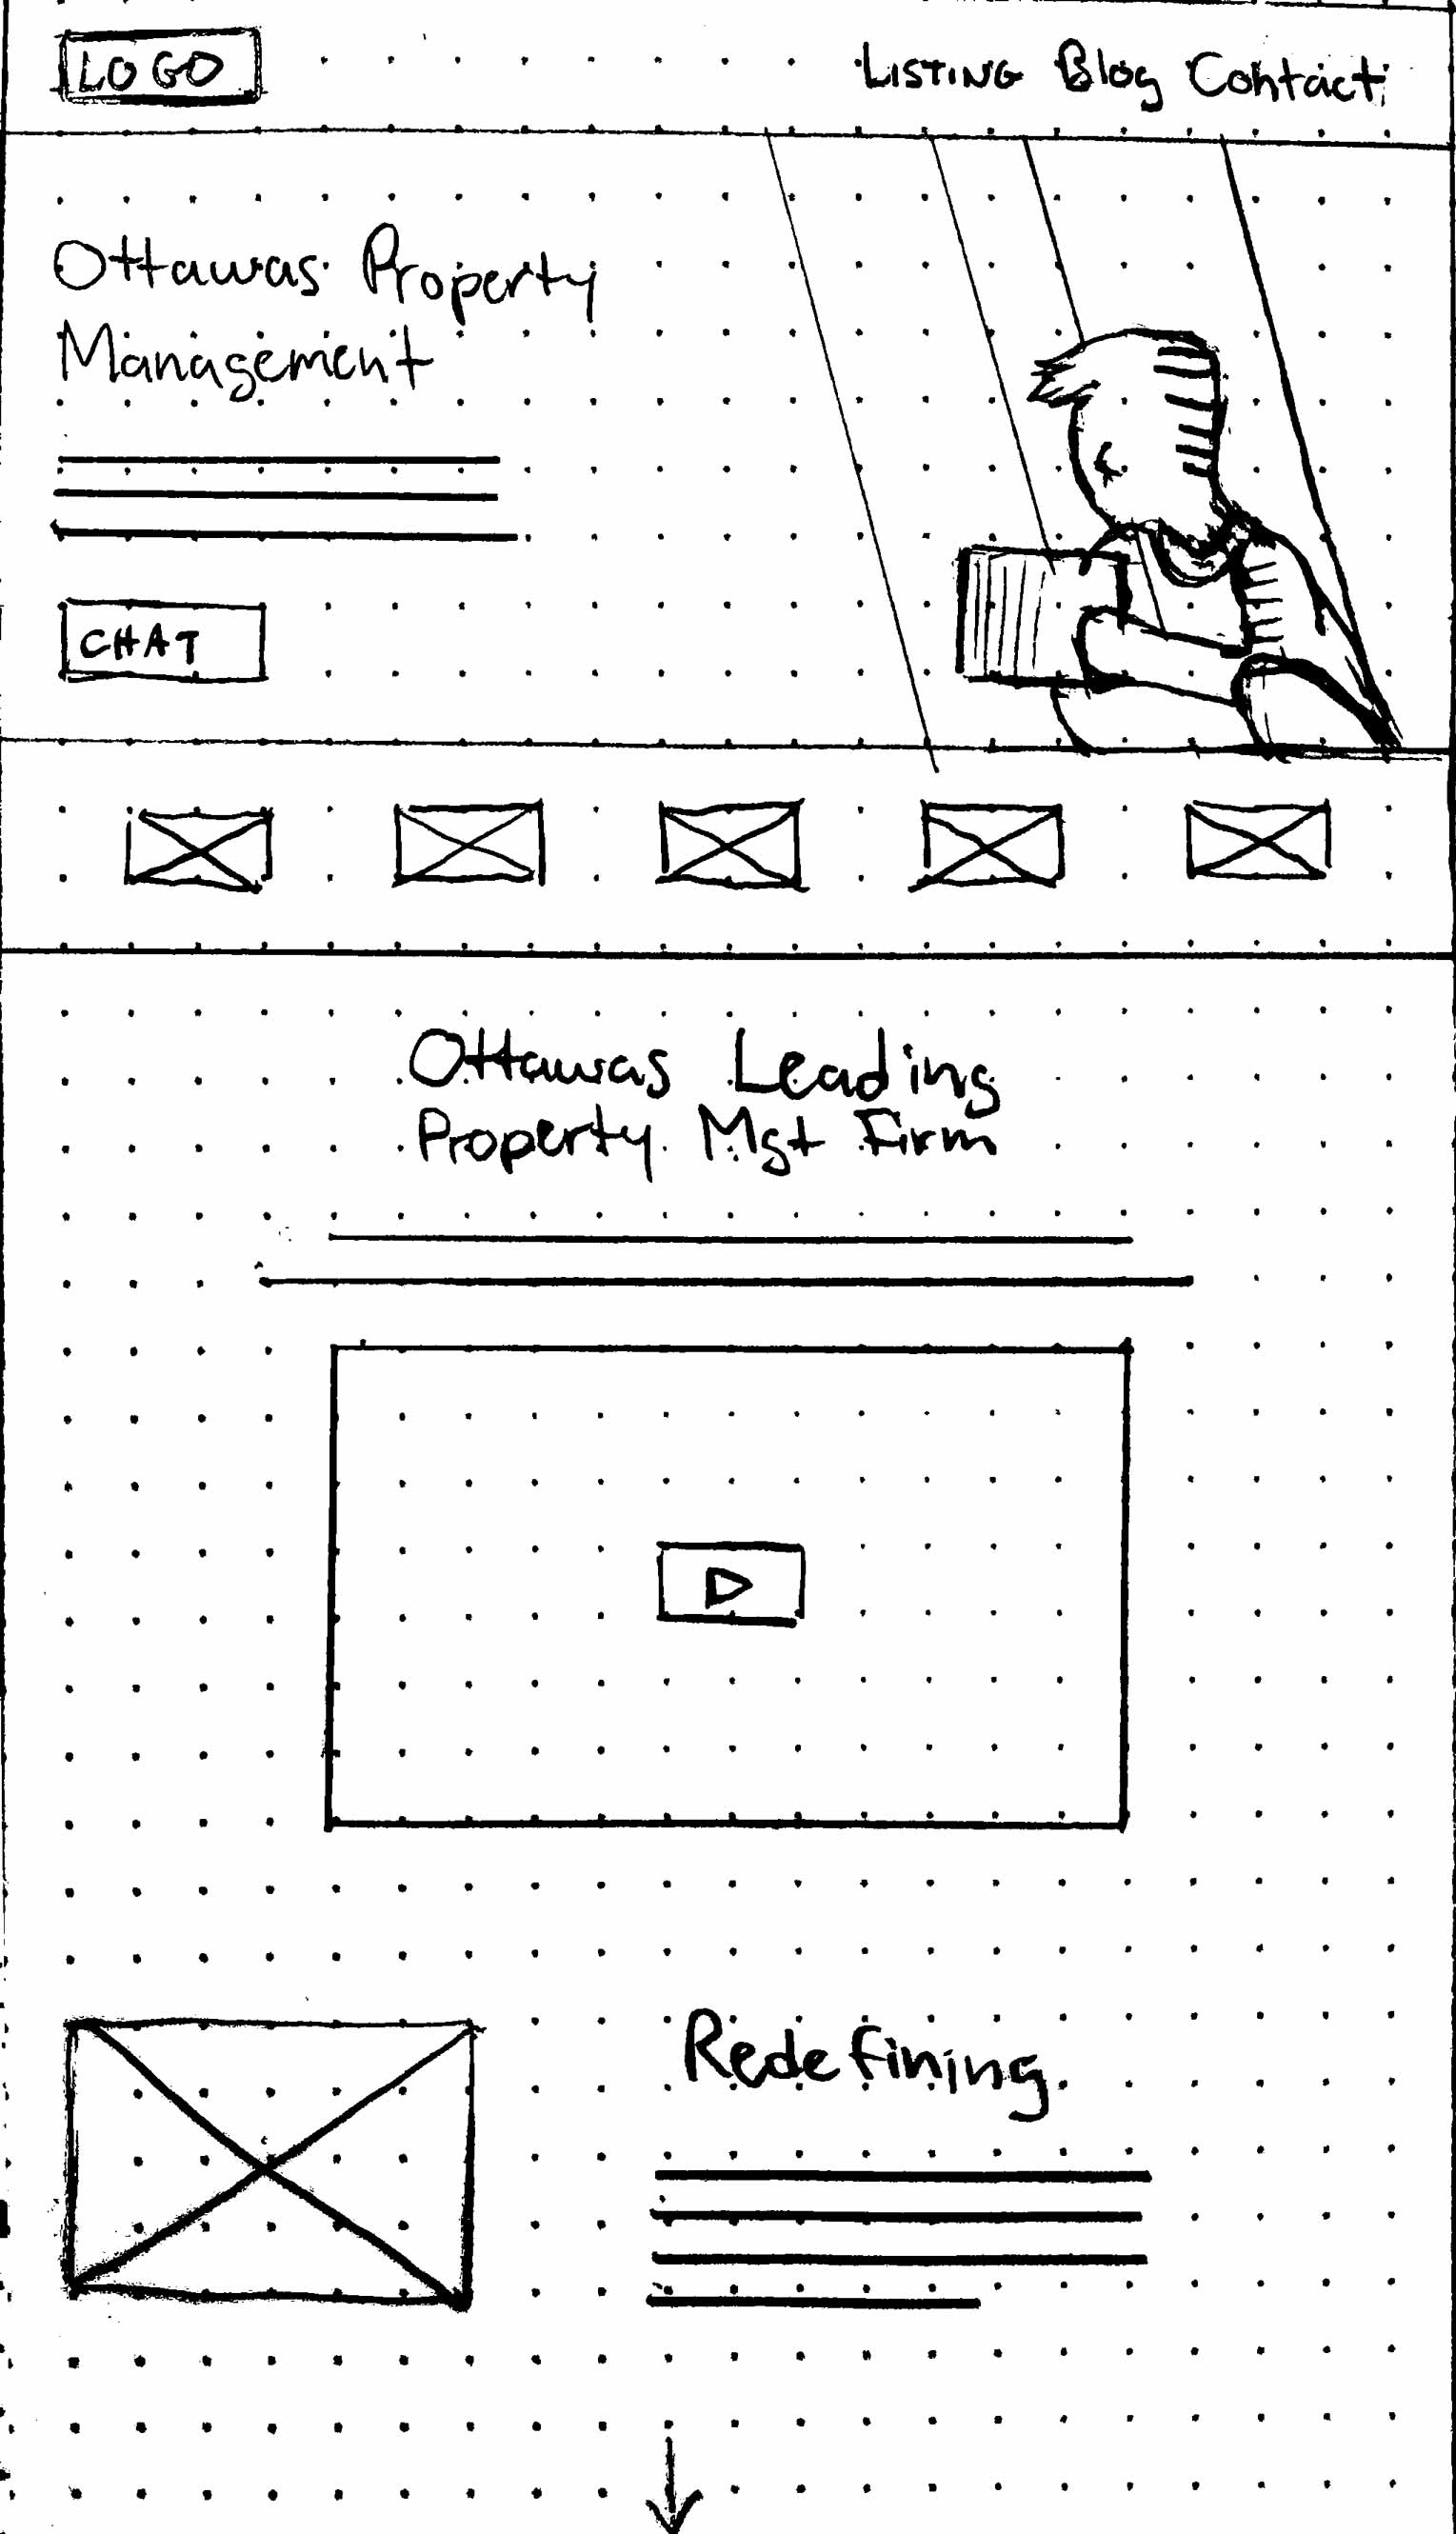 LOGO
LISTING Blog Contact
Ottawas Property
Management
CHAT
Ottawas Leading
Property Mgt Firm
Redefining